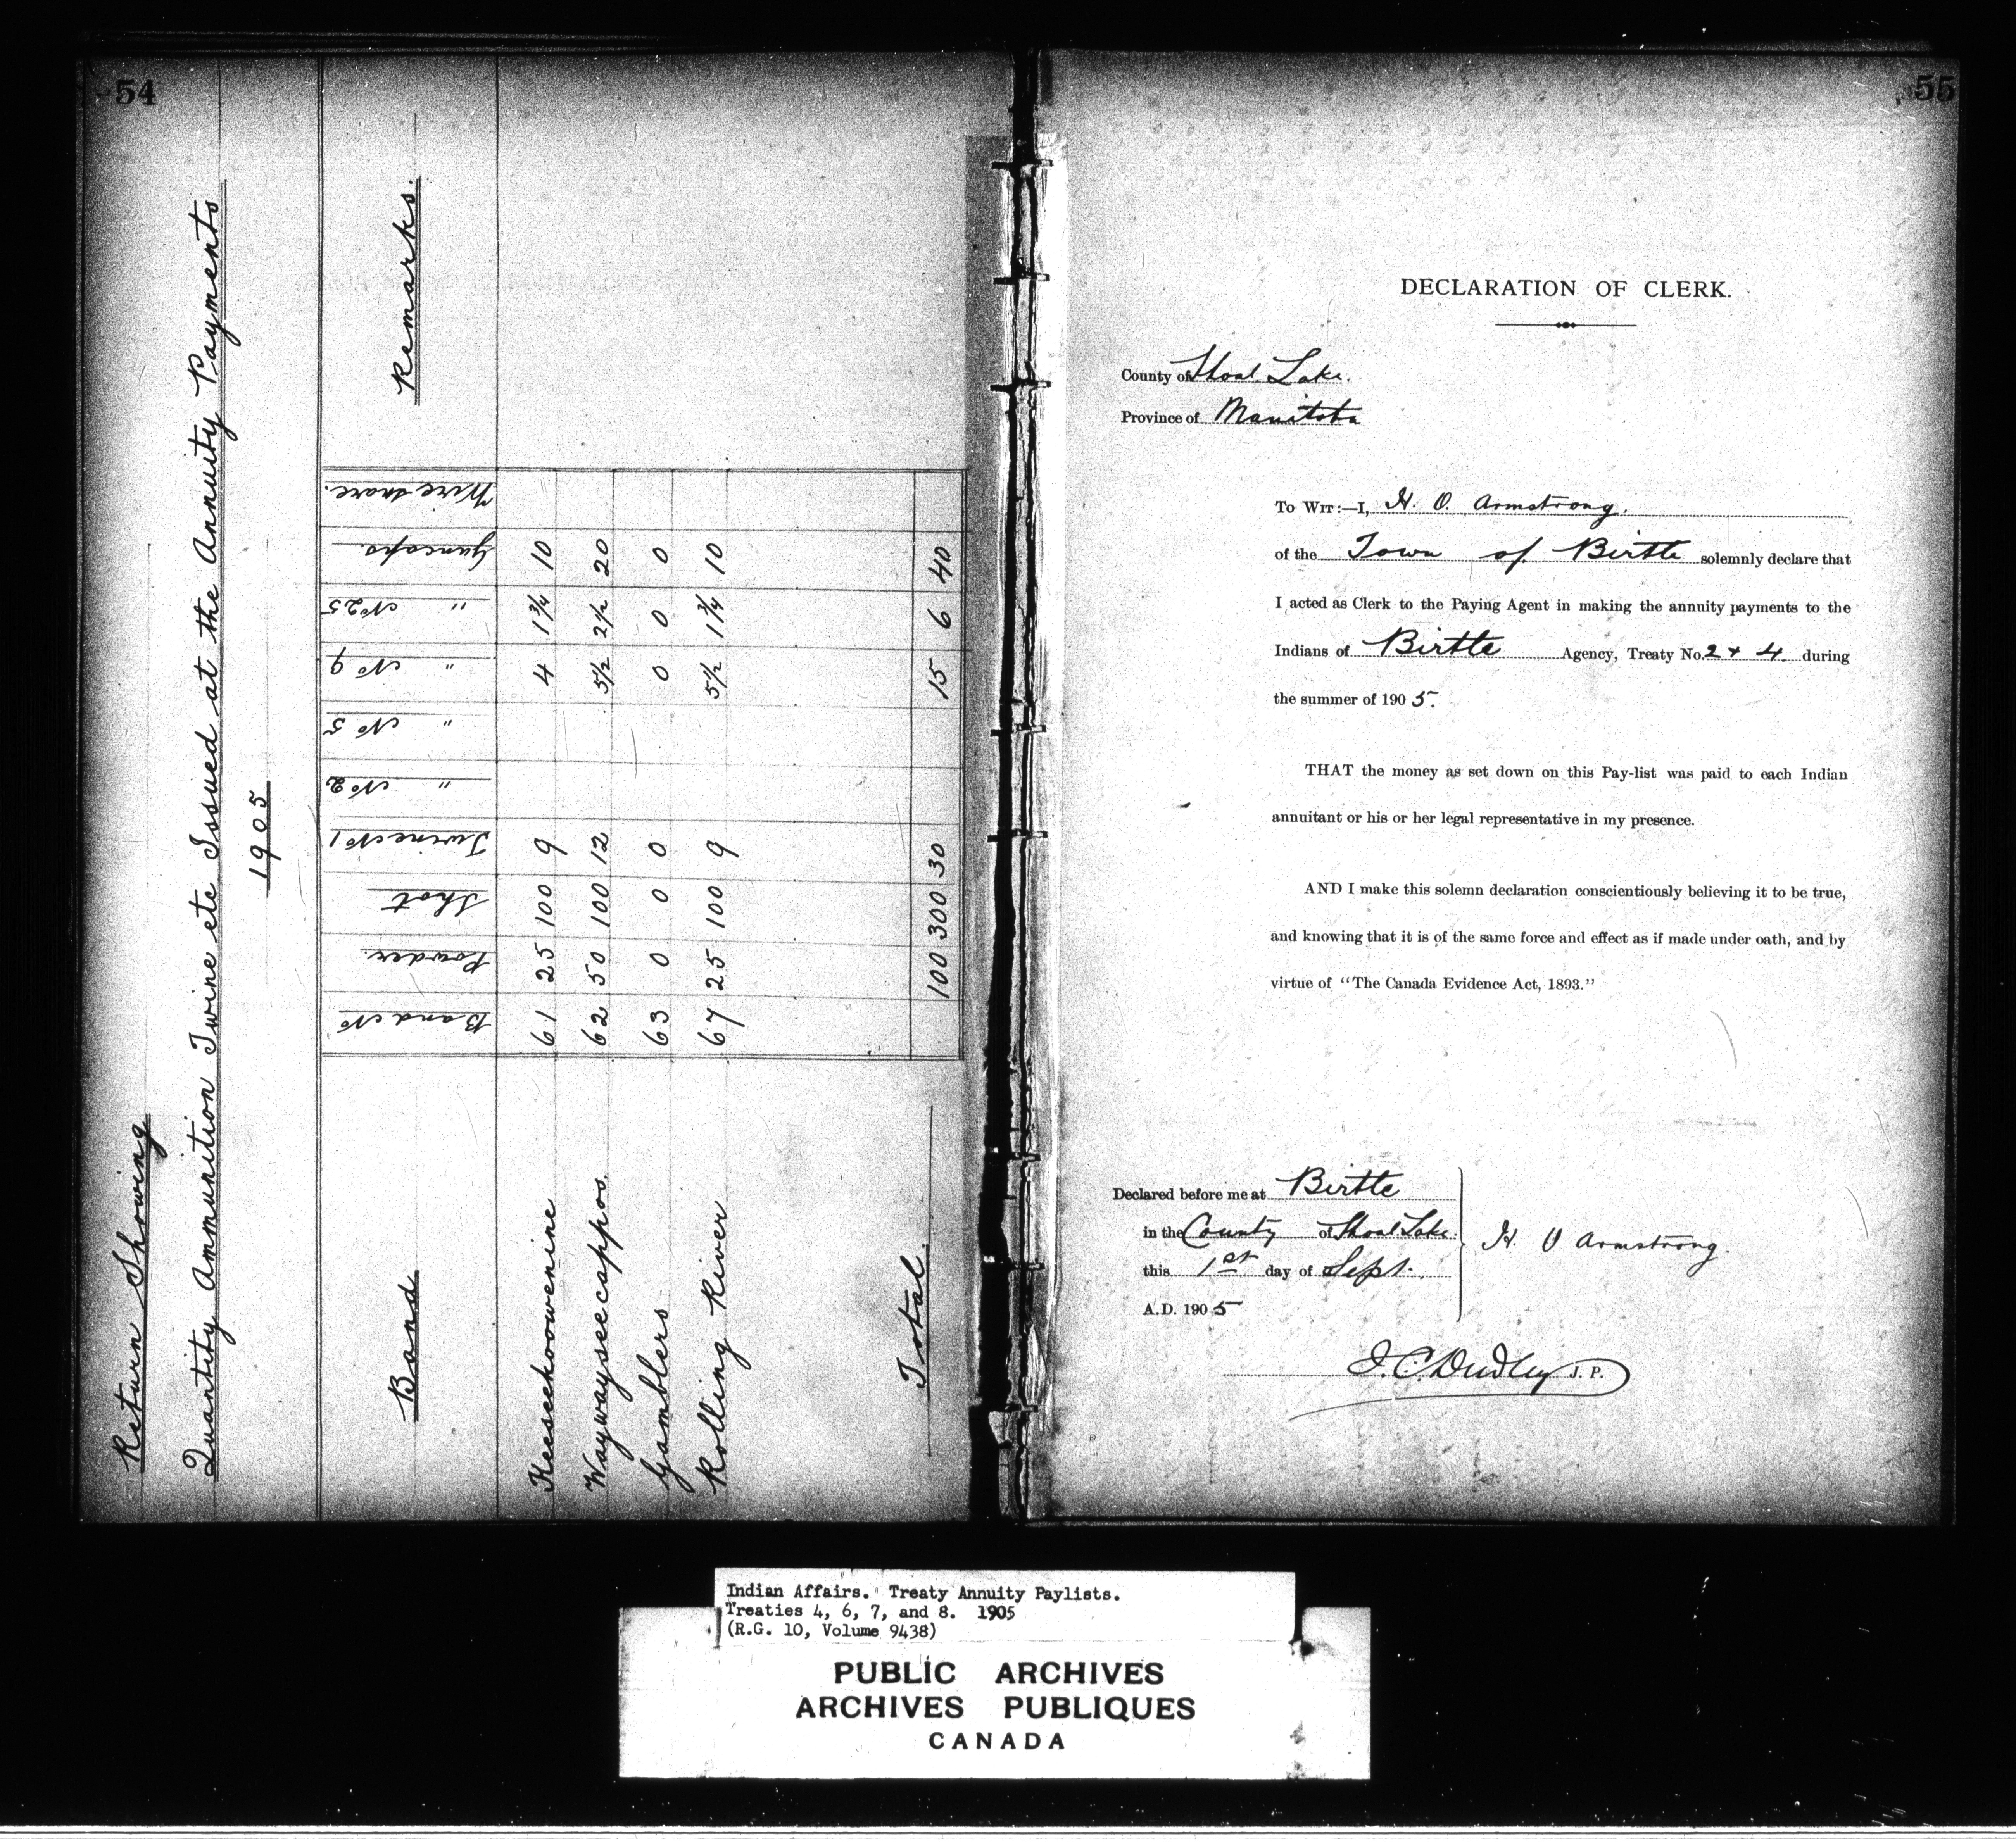 54
Return Showing
Quantity Ammunition Twine etc Issued at the Annuity Payments
1905
Band Band No Powder. Shot Twine No 1 " No 2 " No 5 " No 9 " No 25 Guncaps. Wire snare. Remarks.
Keeseekoowenine 61 25 100 9 4 1 3/4 10
Waywayseecappos. 62 50 100 12 5 1/2 2 1/2 20
Gamblers 63 0 0 0 0 0 0
Rolling River 67 25 100 9 5 1/2 1 3/4 10
Total. 100 300 30 15 6 40
55
DECLARATION OF CLERK.
County of Shoal Lake.
Province of Manitoba
To Wit:—I, H. O. Armstrong.
of the Town of Birtle solemnly declare that
I acted as Clerk to the Paying Agent in making the annuity payments to the
Indians of Birtle Agency, Treaty No. 2 + 4. during
the summer of 1905.
THAT the money as set down on this Pay-list was paid to each Indian
annuitant or his or her legal representative in my presence.
AND I make this solemn declaration conscientiously believing it to be true,
and knowing that it is of the same force and effect as if made under oath, and by
virtue of "The Canada Evidence Act, 1893."
Declared before me at Birtle
in the County of Shoal Lake.
this 1st day of Sept.
A.D. 1905
H. O Armstrong.
J. C. Dudley J. P.
Indian Affairs. Treaty Annuity Paylists.
Treaties 4, 6, 7, and 8. 1905
(R.G. 10, Volume 9438)
PUBLIC ARCHIVES
ARCHIVES PUBLIQUES
CANADA